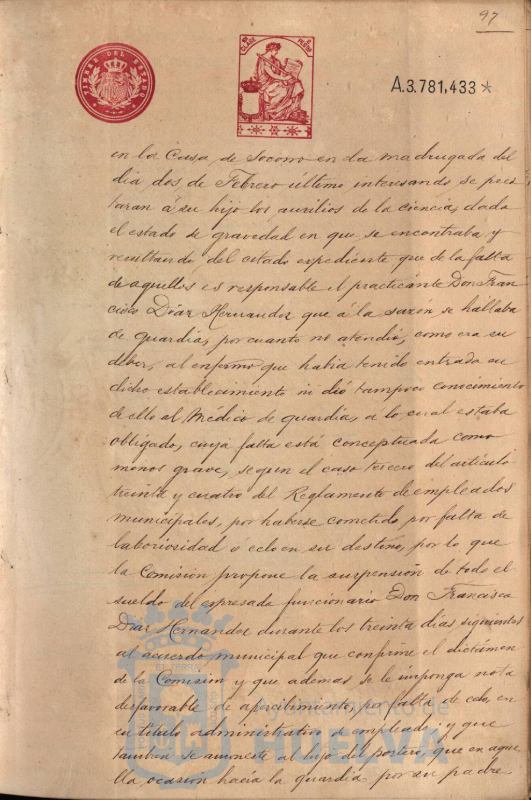 97
TIMBRE DEL ESTADO
A.3.781,433*
en la Casa de Socorro en la madrugada del
dia dos de Febrero último interesando se pres
taran á su hijo los auxilios de la ciencia, dado
el estado de gravedad en que se encontraba y
resultando del citado expediente que de la falta
de aquellos es responsable el practicante Don Fran-
cisco Díaz Hernandez que á la sazón se hallaba
de guardia, por cuanto no atendió, como era su
deber, al enfermo que habia tenido entrada en
dicho establecimiento ni dió tampoco conocimiento
de ello al Médico de guardia, á lo cual estaba
obligado, cuya falta está conceptuada como
menos grave, segun el caso tercero del articulo
treinta y cuatro del Reglamento de empleados
municipales, por haberse cometido por falta de
laboriosidad ó celo en su destino, por lo que
la Comisión propone la suspensión de todo el
sueldo del expresado funcionario Don Francisco
Díaz Hernandez durante los treinta dias siguientes
al acuerdo municipal que confirme el dictámen
de la Comisión y que ademas se le imponga nota
desfavorable de apercibimiento, por falta de celo, en
su título administrativo de empleado; y que
tambien se amoneste al hijo del portero, que en aque
lla ocasión hacía la guardia por su padre
Ayuntamiento de
HUELVA